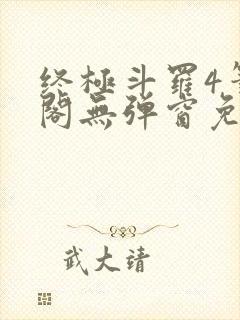 终极斗罗4笔
阁无弹窗免
武大靖